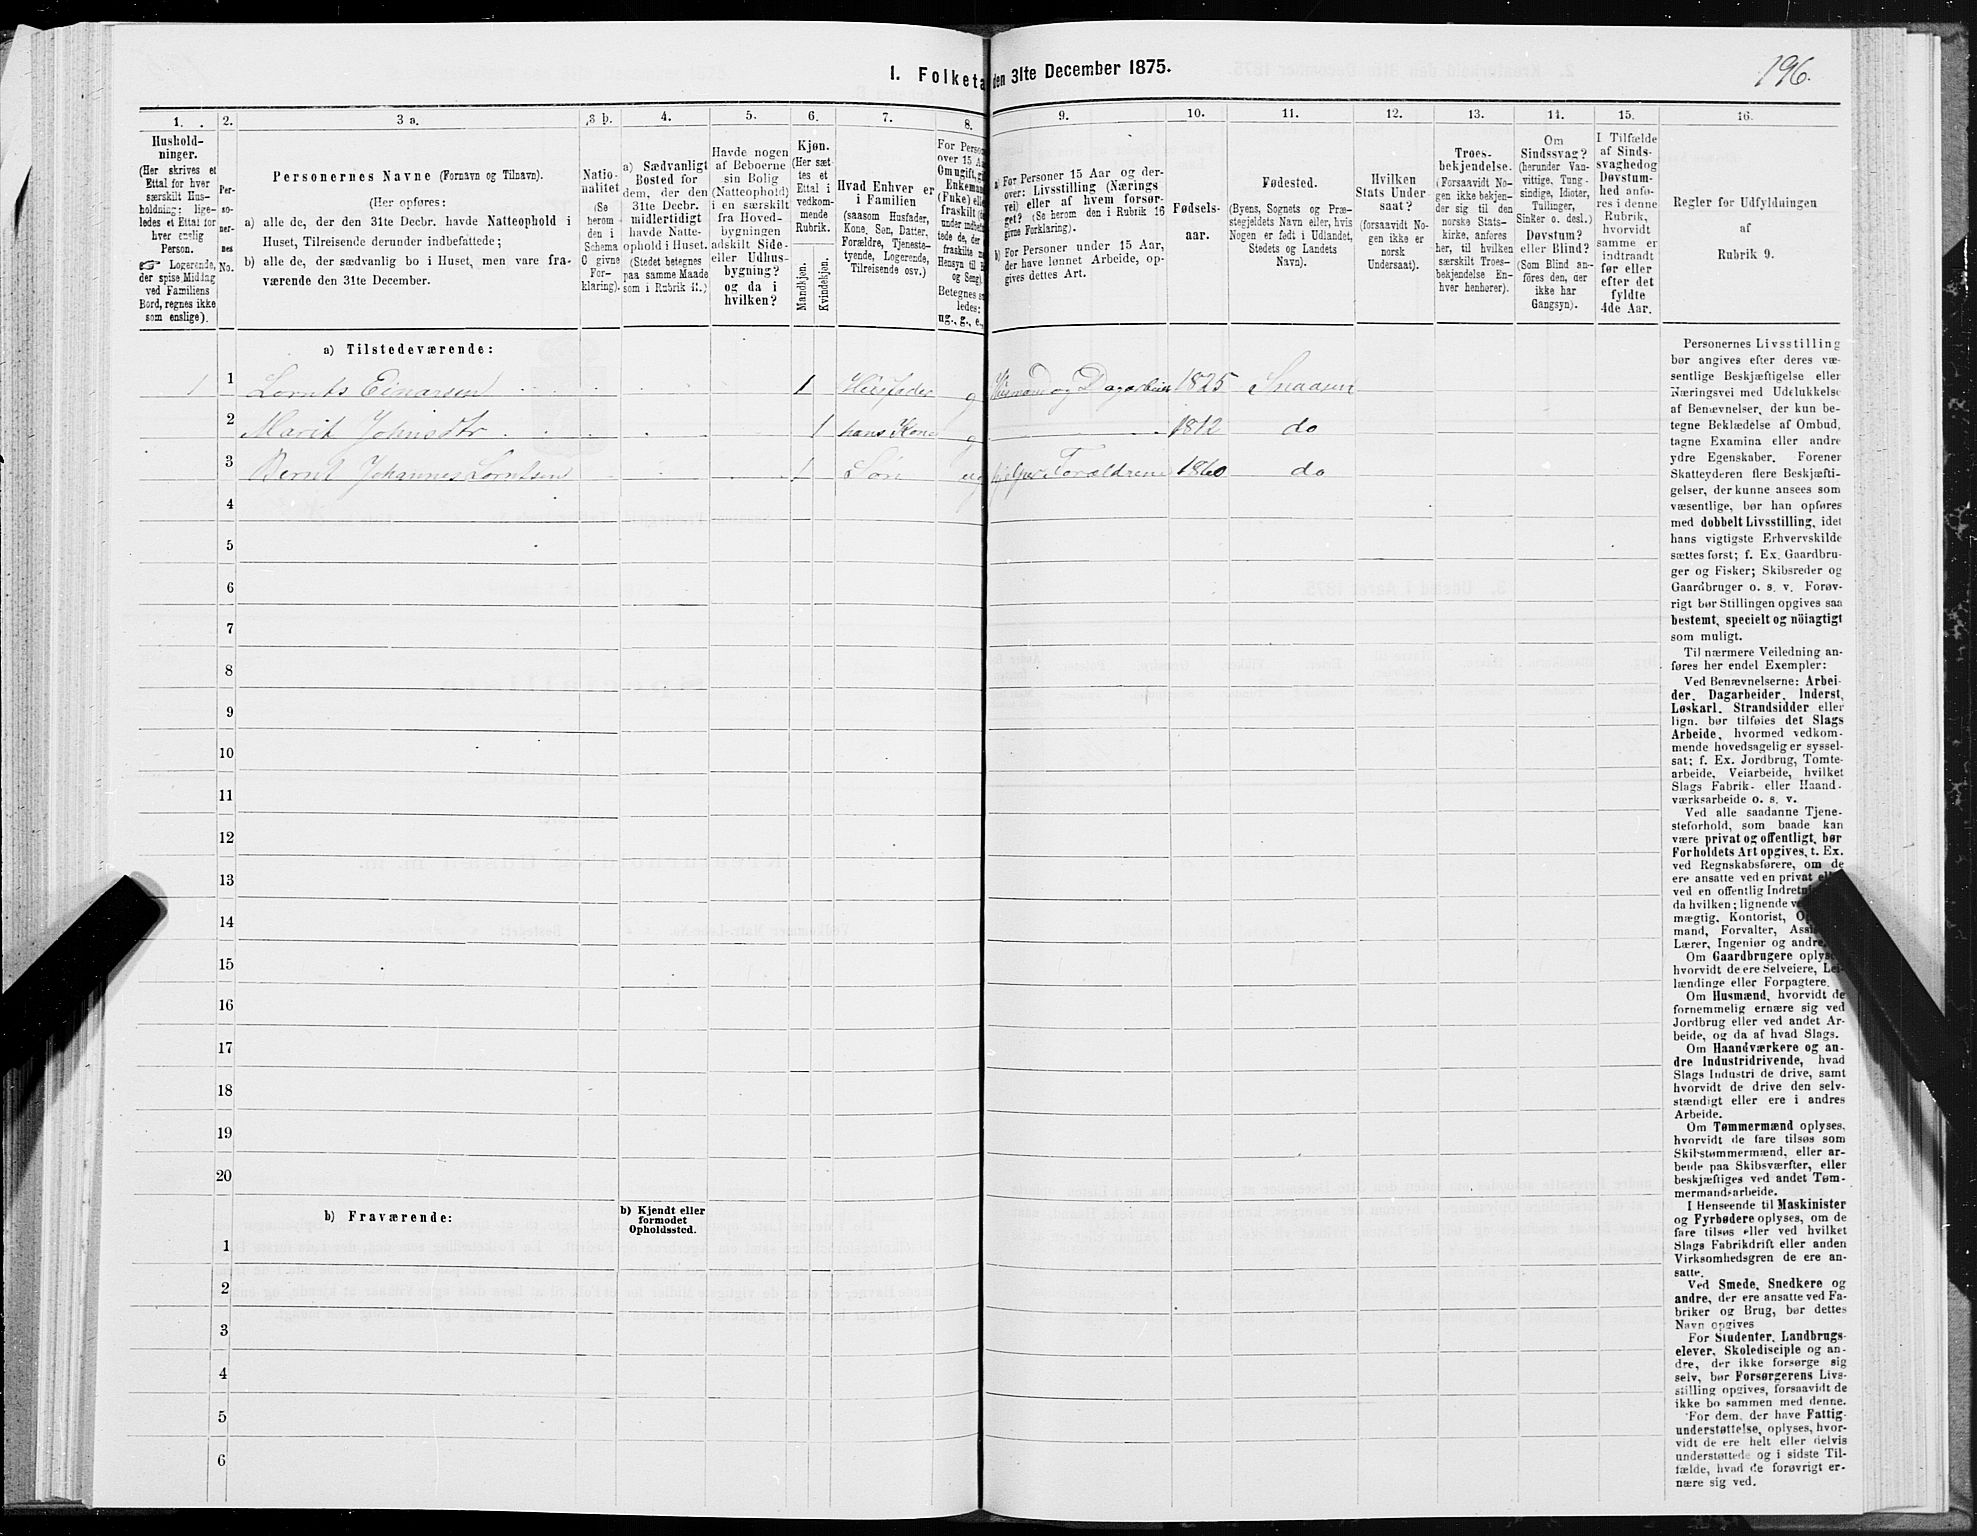 196.
I. Folketa den 31te December 1875.
1. 2. 3 a. 3 b. 4. 5. 6. 7. 8. 9. 10. 11. 12. 13. 14. 15. 16.
Hushold-
ninger.
(Her skrives et
Ettal for hver
særskilt Hus-
holdning; lige-
ledes et Ettal for
hver enslig
Person.
☞ Logerende,
der spise Middag
ved Familiens
Bord, regnes ikke
som enslige).
Per-
so-
ner-
nes
No.
Personernes Navne (Fornavn og Tilnavn).
(Her opføres:
a) alle de, der den 31te Decbr. havde Natteophold i
Huset, Tilreisende derunder indbefattede;
b) alle de, der sædvanlig bo i Huset, men vare fra-
værende den 31te December.
Natio-
nalitet
(Se
herom
den i
Schema
O givne
For-
klaring).
a) Sædvanligt
Bosted for
dem, der den
31te Decbr.
midlertidigt
havde Natte-
ophold i Huset.
(Stedet betegnes
paa samme Maade
som i Rubrik 11.)
Havde nogen
af Beboerne
sin Bolig
(Natteophold)
i en særskilt
fra Hoved-
bygningen
adskilt Side-
eller Udhus-
bygning?
og da i
hvilken?
Kjøn.
(Her sæt-
tes et
Ettal i
vedkom-
mende
Rubrik.
Mandkjøn.
Kvindekjøn.
Hvad Enhver er
i Familien
(saasom Husfader,
Kone, Søn, Datter,
Forældre, Tjeneste-
tyende, Logerende,
Tilreisende osv.)
For Person
over 15 Aa
Om ugift, gi
Enkeman
(Fuke) elle
fraskilt (
under indbef
tede de, der
fraskilte m
Hensyn til B
og Seng).
Betegnes s
ledes:
ug., g., e.,
a) For Personer 15 Aar og der-
over: Livsstilling (Nærings
vei) eller af hvem forsør-
get? (Se herom den i Rubrik 16
givne Forklaring).
b) For Personer under 15 Aar,
der have lønnet Arbeide, op-
gives dettes Art.
Fødsels-
aar.
Fødested.
(Byens, Sognets og Præ-
stegjeldets Navn eller, hvis
Nogen er født i Udlandet,
Stedets og Landets
Navn).
Hvilken
Stats Under
saat?
(forsaavidt No-
gen ikke er
norsk
Undersaat).
Troes-
bekjendelse.
(Forsaavidt No-
gen ikke bekjen-
der sig til den
norske Stats-
kirke, anføres
her, til hvilken
særskilt Troes-
bekjendelse En-
hver henhører).
Om
Sindssvag?
(herunder Van-
vittige, Tung-
sindige, Idioter,
Tullinger,
Sinker o. desl.)
Døvstum?
eller Blind?
(Som Blind an-
føres den, der
ikke har
Gangsyn).
I Tilfælde
af Sinds-
svaghed og
Døvstum-
hed anfø-
res i denne
Rubrik,
hvorvidt
samme er
indtraadt
før eller
efter det
fyldte
4de Aar.
Regler for Udfyldningen
af
Rubrik 9.
a) Tilstedeværende:
1 1 Lornts Einarsen 1 Husfader g Husmand og Dagarbeider 1825 Snaasen
2 Marit Johnsdtr 1 hans Kone g 1812 do
3 Bernt Johannes Lorntsen 1 Søn ug hjelper Forældrene 1860 do
4
5
6
7
8
9
10
11
12
13
14
15
16
17
18
19
20
b) Fraværende:
b) Kjendt eller
formodet
Opholdssted.
1
2
3
4
5
6
Personernes Livsstilling
bør angives efter deres væ-
sentlige Beskjæftigelse eller
Næringsvei med Udelukkelse
af Benævnelser, der kun be-
tegne Beklædelse af Ombud,
tagne Examina eller andre
ydre Egenskaber. Forener
Skatteyderen flere Beskjæfti-
gelser, der kunne ansees som
væsentlige, bør han opføres
med dobbelt Livsstilling, idet
hans vigtigste Erhvervskilde
sættes først; f. Ex. Gaardbru-
ger og Fisker; Skibsreder og
Gaardbruger o. s. v. Forøv-
rigt bør Stillingen opgives saa
bestemt, specielt og nöiagtigt
som muligt.
Til nærmere Veiledning an-
føres her endel Exempler:
Ved Benævnelserne: Arbei-
der, Dagarbeider, Inderst,
Løskarl, Strandsidder eller
lign. bør tilføies det Slags
Arbeide, hvormed vedkom-
mende hovedsagelig er syssel-
sat; f. Ex. Jordbrug, Tomte-
arbeide, Veiarbeide, hvilket
Slags Fabrik- eller Haand-
værksarbeide o. s. v.
Ved alle saadanne Tjene-
steforhold, som baade kan
være privat og offentligt, bør
Forholdets Art opgives, t. Ex.
ved Regnskabsførere, om de
ere ansatte ved en privat el
ved en offentlig Indretn
da hvilken; lignende v
mægtig, Kontorist, Op
mand, Forvalter, Assi
Lærer, Ingeniør og andre.
Om Gaardbrugere oplys
hvorvidt de ere Selveiere, Lei-
lændinge eller Forpagtere.
Om Husmænd, hvorvidt de
fornemmelig ernære sig ved
Jordbrug eller ved andet Ar-
beide, og da af hvad Slags.
Om Haandværkere og an-
dre Industridrivende, hvad
Slags Industri de drive, samt
hvorvidt de drive den selv-
stændigt eller ere i andres
Arbeide.
Om Tømmermænd oplyses,
hvorvidt de fare tilsøs som
Skibstømmermænd, eller ar-
beide paa Skibsværfter, eller
beskjæftiges ved andet Tøm-
mermandsarbeide.
I Henseende til Maskinister
og Fyrbødere oplyses, om de
fare tilsøs eller ved hvilket
Slags Fabrikdrift eller anden
Virksomhedsgren de ere an-
satte.
Ved Smede, Snedkere og
andre, der ere ansatte ved Fa-
briker og Brug, bør dettes
Navn opgives
For Studenter, Landbrugs-
elever, Skoledisciple og an-
dre, der ikke forsørge sig
selv, bør Forsørgerens Livs-
stilling opgives, forsaavidt de
ikke bo sammen med denne.
For dem, der have Fattig-
understøttelse, oplyses, hvor-
vidt de ere helt eller delvis
understøttede og i sidste Til-
fælde, hvad de forøvrigt er-
nære sig ved.